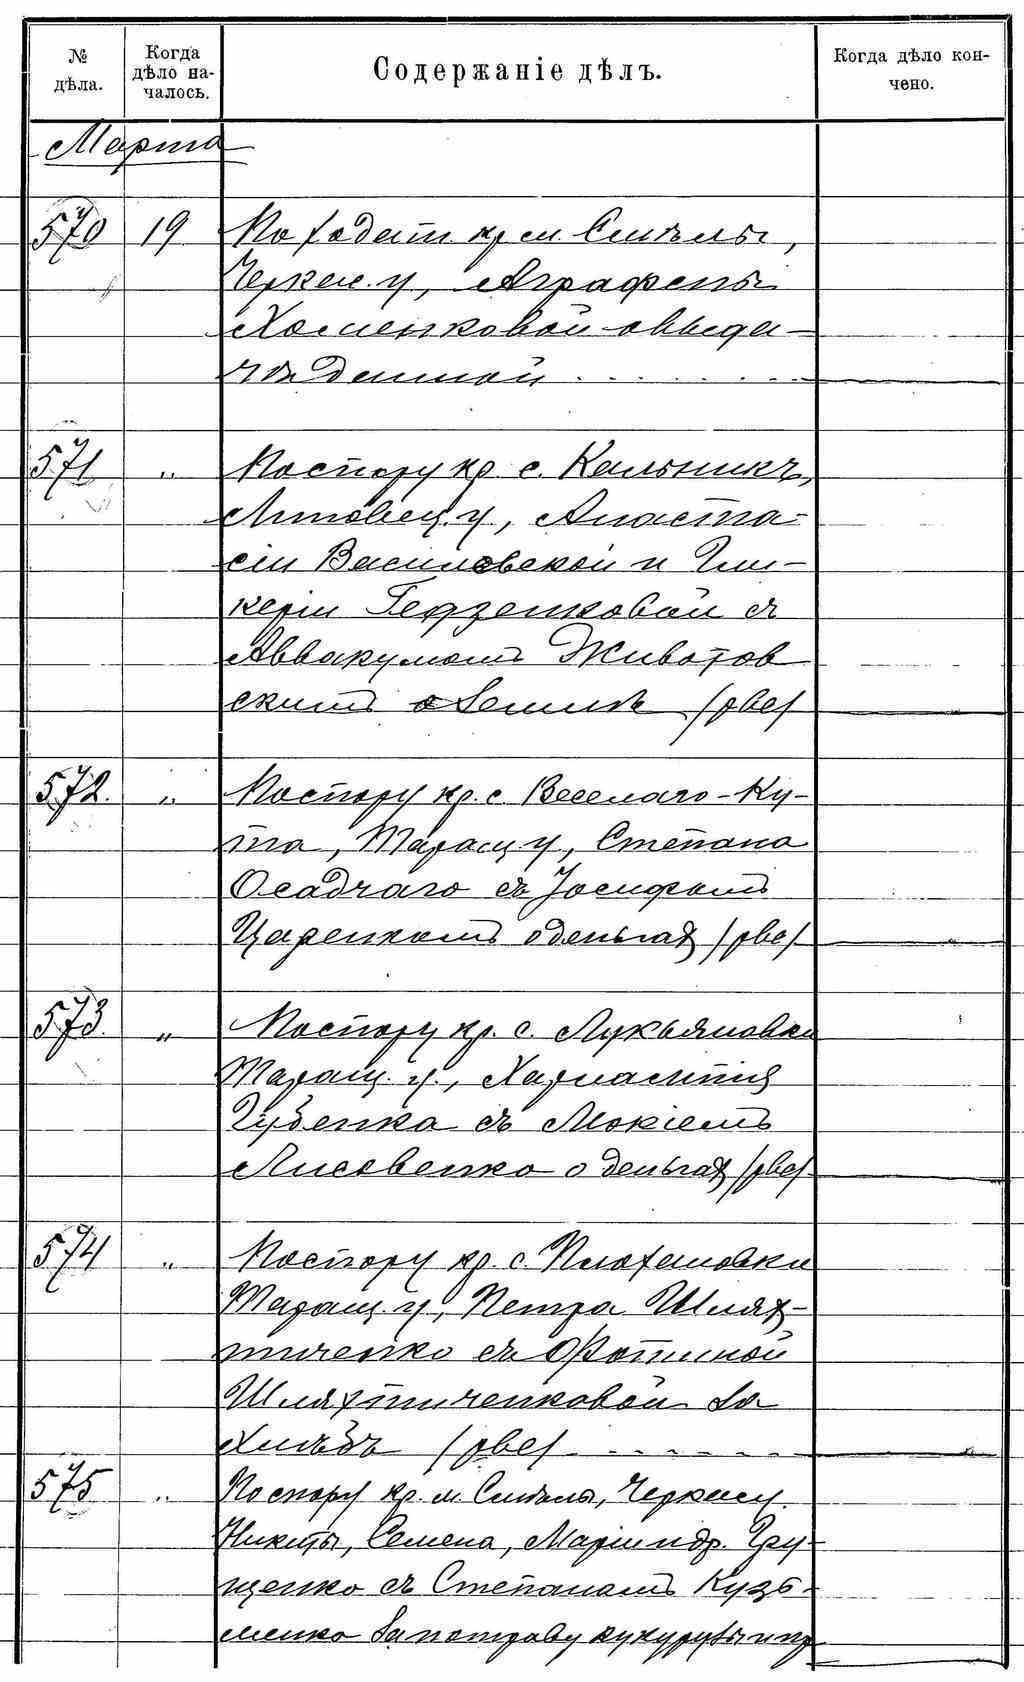 № дѣла. Когда дѣло началось. Содержаніе дѣлъ. Когда дѣло кончено.
Марта
570 19 По ходат. кр. м. Смѣлы,
Черкас. у., Аграфены
Хоменковой о выда-
чѣ данной . . . . . .
571 „ По спору кр. с. Кальникъ,
Липовец. у., Анаста-
сіи Василевской и Гли-
керіи Гедзенковой съ
Аввакумомъ Животов
скимъ о землѣ /рве/
572. „ По спору кр. с. Веселаго-Ку-
та, Таращ. у., Степана
Осадчаго съ Іосифомъ
Царенкомъ о деньгах /рве/
573. „ По спору кр. с. Лукьяновки
Таращ. у., Харлампія
Губенка съ Мокіемъ
Лисовенко о деньгах /рве/
574 „ По спору кр. с. Плохановки
Таращ. у., Петра Шлях-
тиченко съ Фотиной
Шляхтиченковой за
хлѣбъ /рве/
575 „ По спору кр. м. Смѣлы, Черкас. у.
Никиты, Семена, Маріи и др. Гру-
щенко съ Степаномъ Кузь-
менко за потраву кукурузы и пр